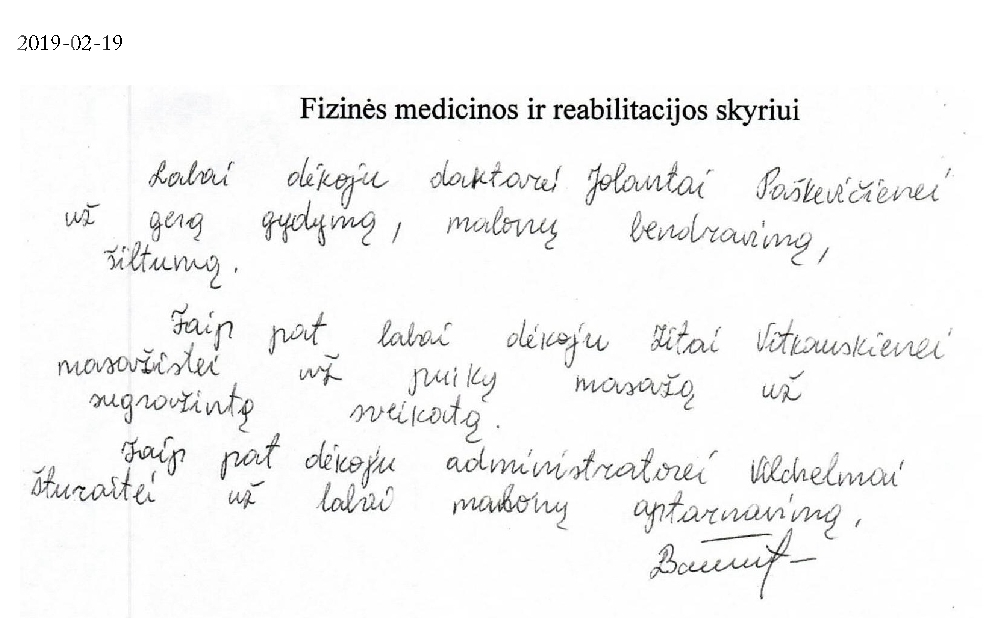 2019-02-19
Fizinės medicinos ir reabilitacijos skyriui
Labai dėkoju daktarei Jolantai Paškevičienei
už gerą gydymą, malonų bendravimą,
šiltumą.
Taip pat labai dėkoju Zitai Vitkauskienei
masažistei už puikų masažą už
sugrąžintą sveikatą.
Taip pat dėkoju administratorei Vilhelmai
Šturaitei už labai malonų aptarnavimą.